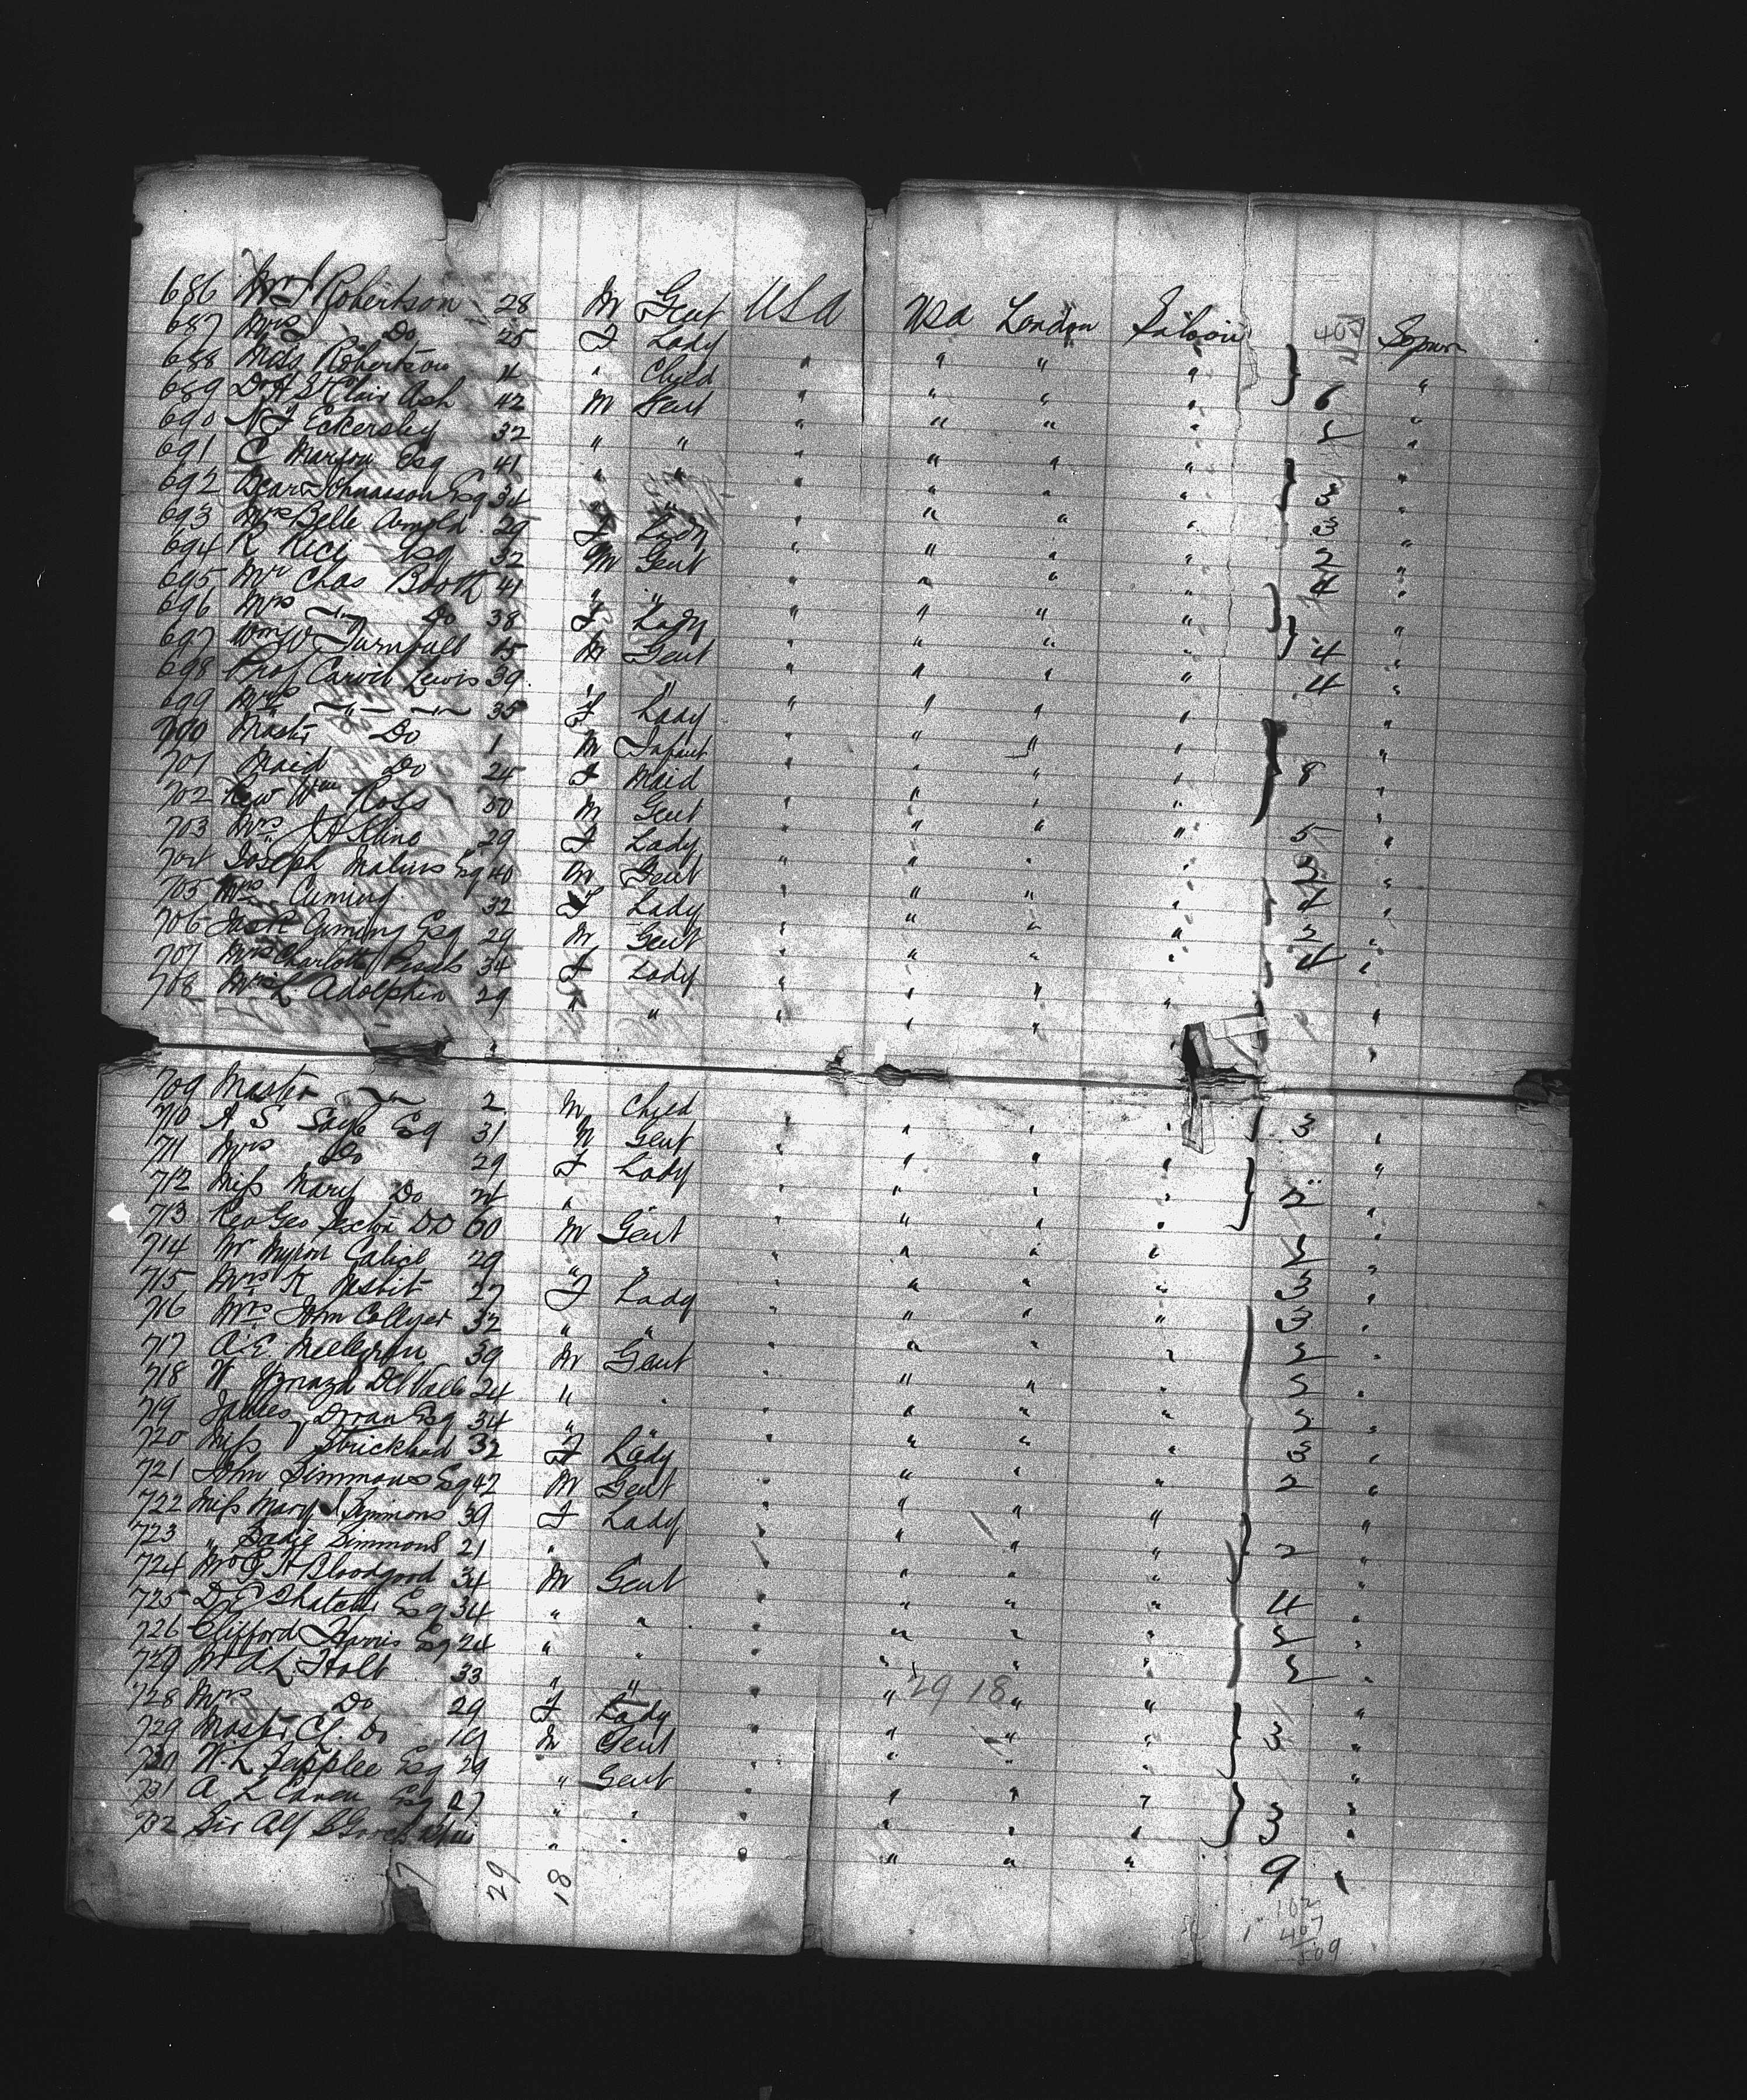 407
686 Mr J Robertson 28 M Gent USA USA London Saloon Sojourn
687 Mrs " Do 25 F Lady " " " "
688 Miss Robertson 11 " Child " " " " 6 "
689 Dr A St Clair Ash 42 M Gent " " " " 2 "
690 N J Eckersley 32 " " " " " " "
691 C Marson Esq 41 " " " " " " 3 "
692 Esq 34 " " " " " " 3 "
693 Mrs Belle Arnold 29 F Lady " " " " 2 "
694 R Rice Esq 32 M Gent " " " " 4 "
695 Mr Chas Booth 41 " " " " " " "
696 Mrs " Do 38 F Lady " " " " 4 "
697 Wm W Turnbull 45 M Gent " " " " 4 "
698 Prof Carvill Lewis 39 " " " " " " "
699 Mrs " " 35 F Lady " " " " "
700 Mastr Do 1 M Infant " " " " 8 "
701 Maid Do 24 F Maid " " " " "
702 Rev Wm Ross 50 M Gent " " " " 5 "
703 Mrs J A Kline 29 F Lady " " " " 3 "
704 Joseph Malins Esq 40 M Gent " " " " 4 "
705 Mrs Cuming 32 F Lady " " " " 2 "
706 Jas R Cuming Esq 29 M Gent " " " " 4 "
707 Mrs Charlotte 34 F Lady " " " " "
708 Mrs L Adolphin 29 " " " " " " "
709 Mastr " 2 M Child " " " " 3 "
710 A S Esq 31 M Gent " " " " "
711 Mrs Do 29 F Lady " " " " 2 "
712 Miss Mary Do " " " " " "
713 Rev Geo DD 60 M Gent " " " " 2 "
714 Mr Myron 29 " " " " " " 3 "
715 Mrs K Nesbit 27 F Lady " " " " 3 "
716 Mrs John Collyer 32 " " " " " " 2 "
717 A. E. 39 M Gent " " " " 2 "
718 W Del Valle 24 " " " " " " 2 "
719 James Doran Esq 34 " " " " " " 3 "
720 Miss Strickland 32 F Lady " " " " 2 "
721 John Simmons Esq 47 M Gent " " " " "
722 Miss Mary Simmons 39 F Lady " " " " 2 "
723 " Sadie Simmons 21 " " " " " "
724 Mr G H Bloodgood 34 M Gent " " " " 4 "
725 D. E. Esq 34 " " " " " " 2 "
726 Clifford Harris Esq 24 " " " " " " 2 "
727 Mr A L Holt 33 " " " " " " "
29 18
728 Mrs Do 29 F Lady " " " " 3 "
729 Mastr Ch. Do M Gent " " " " "
730 W. L. Esq 29 " Gent " " " " 3 "
731 A L Esq 27 " " " " " " "
732 Sir Alf " " " " " " 9 "
7 29 18
102
407
509